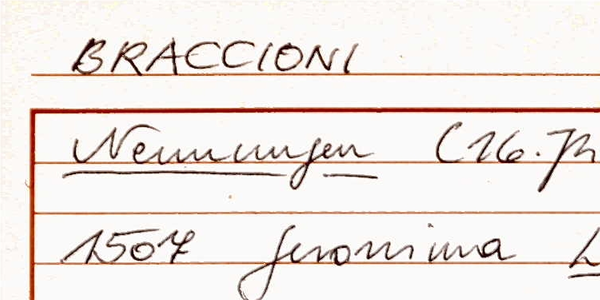 BRACCIONI
Nennungen (16. Jh
1507 Jeronima